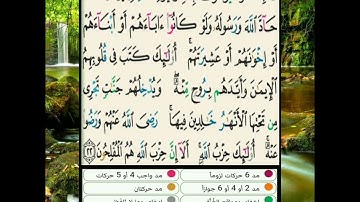 حَآدَّ ٱللَّهَ وَرَسُولَهُۥ وَلَوْ كَانُوٓا۟ ءَابَآءَهُمْ أَوْ أَبْنَآءَهُمْ
أَوْ إِخْوَٰنَهُمْ أَوْ عَشِيرَتَهُمْ ۚ أُو۟لَٰٓئِكَ كَتَبَ فِى قُلُوبِهِمُ
ٱلْإِيمَٰنَ وَأَيَّدَهُم بِرُوحٍ مِّنْهُ ۖ وَيُدْخِلُهُمْ جَنَّٰتٍ تَجْرِى
مِن تَحْتِهَا ٱلْأَنْهَٰرُ خَٰلِدِينَ فِيهَا ۚ رَضِىَ ٱللَّهُ عَنْهُمْ وَرَضُوا۟
عَنْهُ ۚ أُو۟لَٰٓئِكَ حِزْبُ ٱللَّهِ ۚ أَلَآ إِنَّ حِزْبَ ٱللَّهِ هُمُ ٱلْمُفْلِحُونَ ٢٢
مد 6 حركات لزوماً مد واجب 4 أو 5 حركات
مد 2 أو 4 أو 6 جوازاً مد حركتان